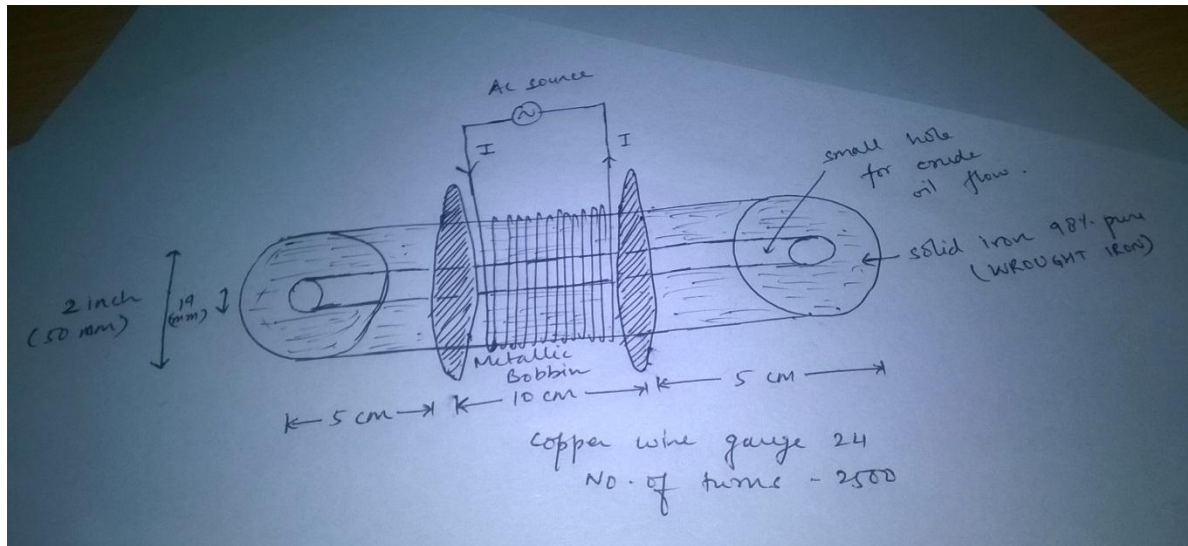 Ac source
I
I
small hole
for crude
oil flow.
solid iron 98% pure
(WROUGHT IRON)
2 inch
(50 mm)
19
(mm)
Metallic
Bobbin
5 cm
10 cm
5 cm
copper wire gauge 24
No. of turns - 2500